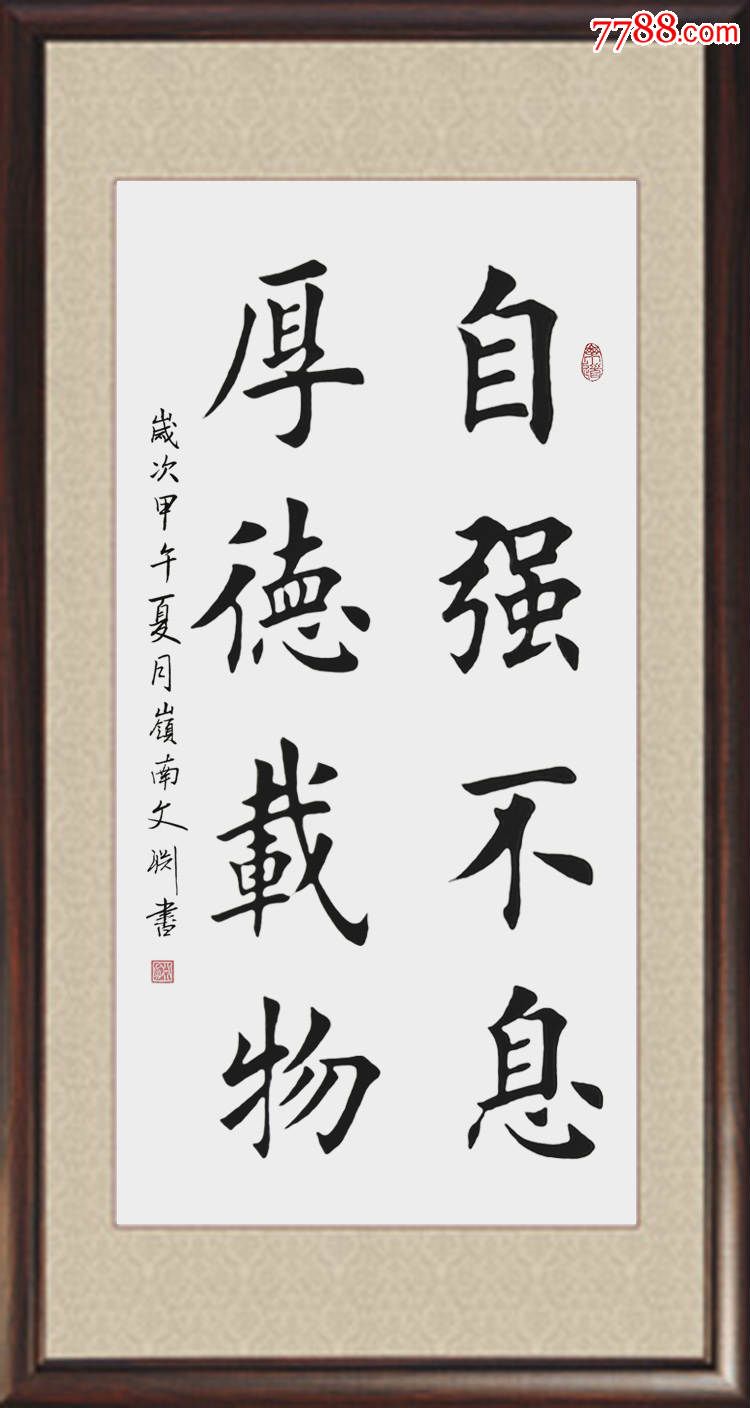 7788.com
自强不息
厚德載物
歲次甲午夏月嶺南文渕書